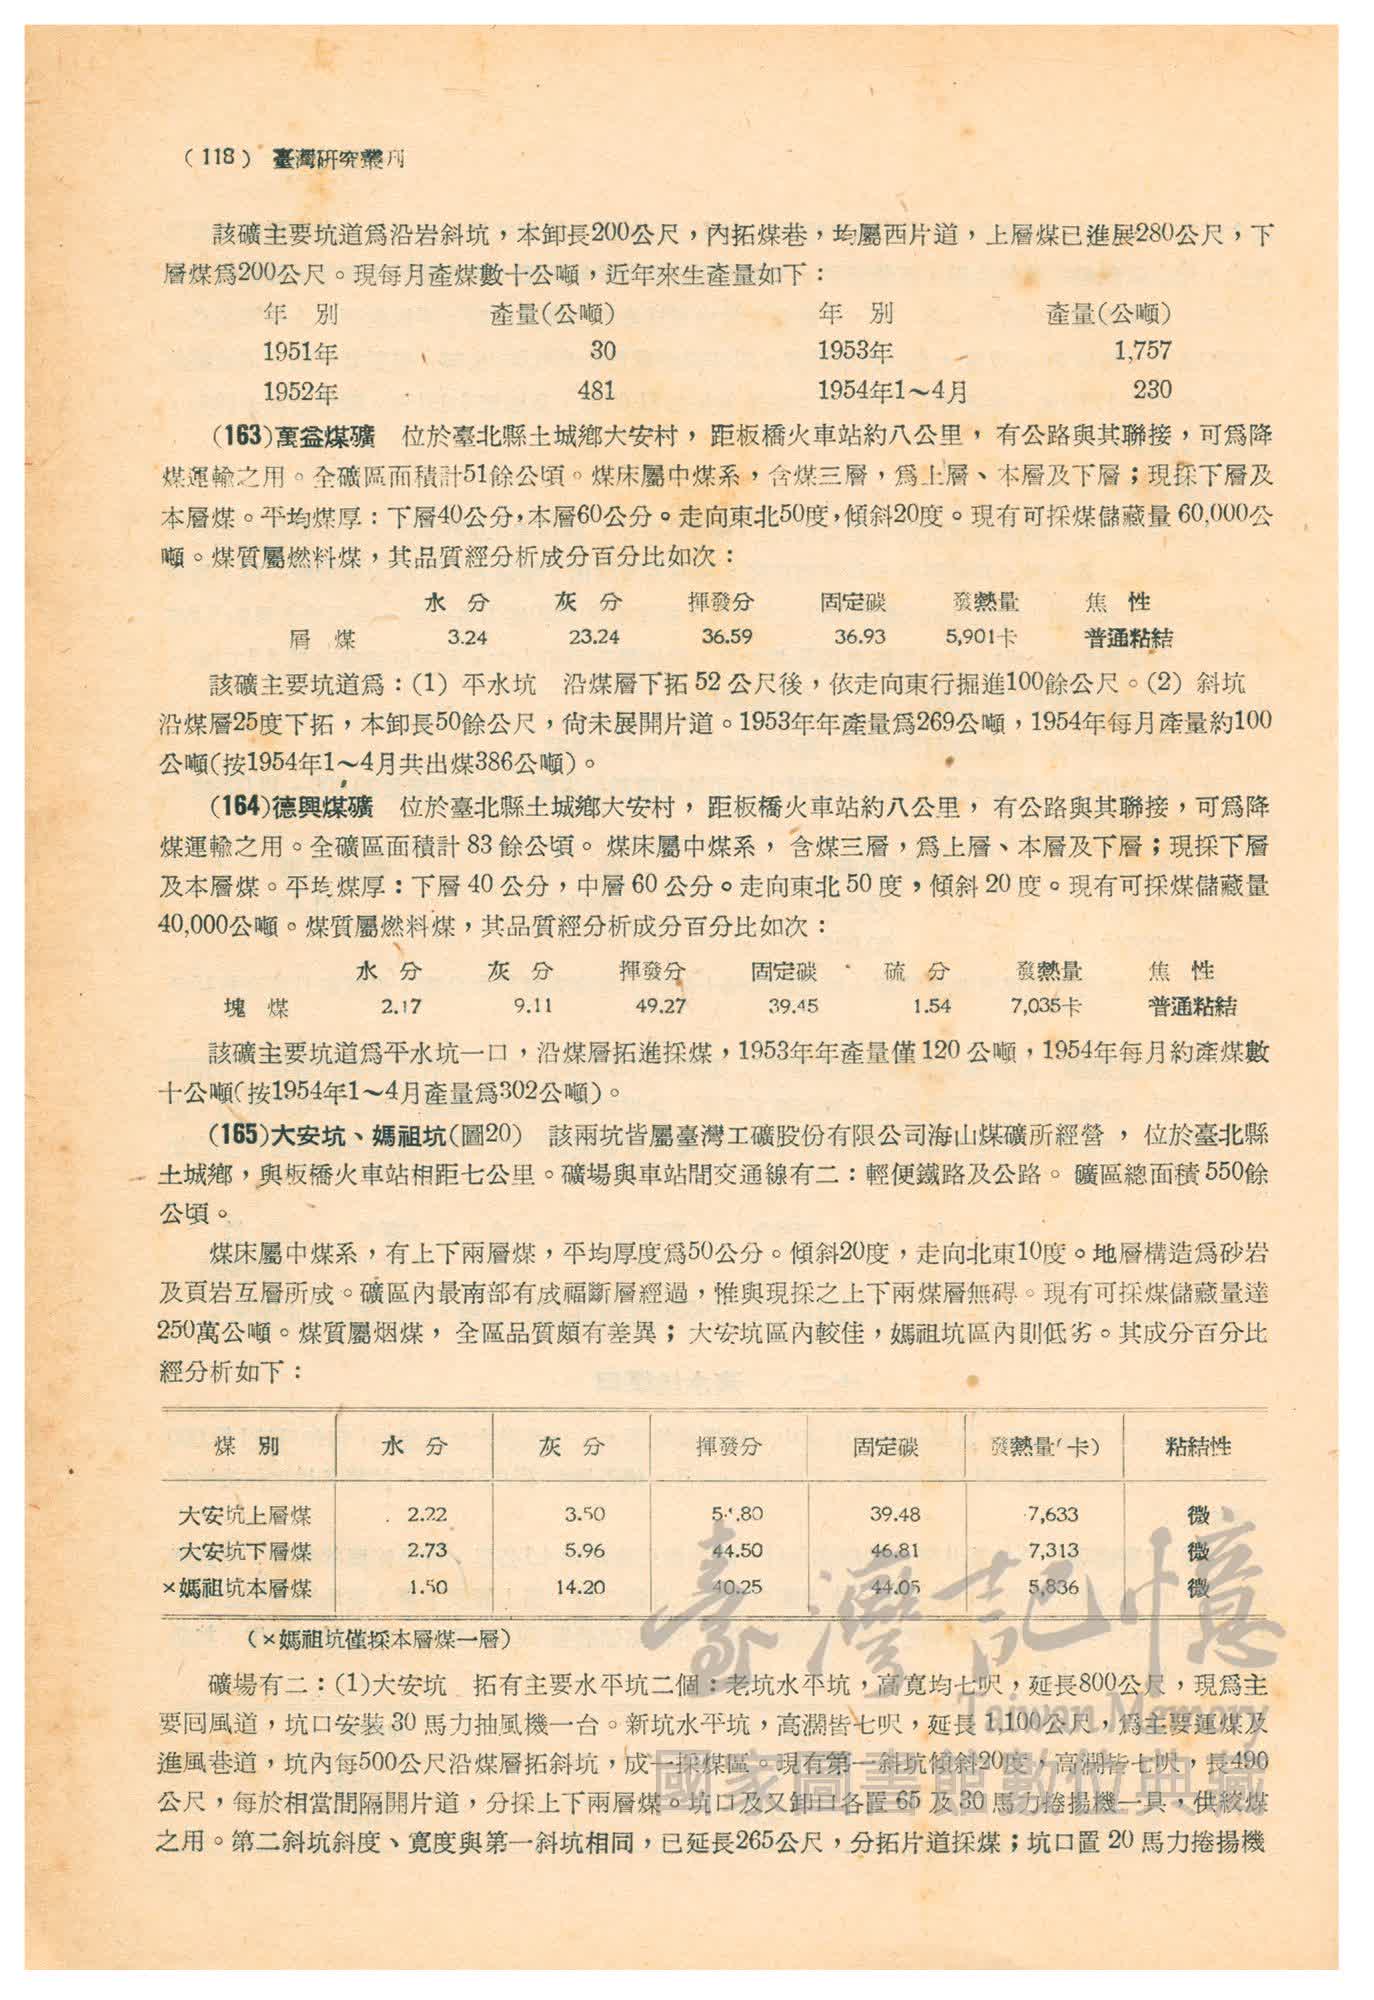 (118) 臺灣研究叢刊
該礦主要坑道爲沿岩斜坑，本卸長200公尺，內拓煤巷，均屬西片道，上層煤已進展280公尺，下
層煤爲200公尺。現每月產煤數十公噸，近年來生產量如下：
年 別 產量(公噸) 年 別 產量(公噸)
1951年 30 1953年 1,757
1952年 481 1954年1～4月 230
(163)萬益煤礦 位於臺北縣土城鄉大安村，距板橋火車站約八公里，有公路與其聯接，可爲降
煤運輸之用。全礦區面積計51餘公頃。煤床屬中煤系，含煤三層，爲上層、本層及下層；現採下層及
本層煤。平均煤厚：下層40公分，本層60公分。走向東北50度，傾斜20度。現有可採煤儲藏量60,000公
噸。煤質屬燃料煤，其品質經分析成分百分比如次：
水 分 灰 分 揮發分 固定碳 發熱量 焦 性
屑 煤 3.24 23.24 36.59 36.93 5,901卡 普通粘結
該礦主要坑道爲：(1) 平水坑 沿煤層下拓52公尺後，依走向東行掘進100餘公尺。(2) 斜坑
沿煤層25度下拓，本卸長50餘公尺，尙未展開片道。1953年年產量爲269公噸，1954年每月產量約100
公噸(按1954年1～4月共出煤386公噸)。
(164)德興煤礦 位於臺北縣土城鄉大安村，距板橋火車站約八公里，有公路與其聯接，可爲降
煤運輸之用。全礦區面積計83餘公頃。煤床屬中煤系，含煤三層，爲上層、本層及下層；現採下層
及本層煤。平均煤厚：下層40公分，中層60公分。走向東北50度，傾斜20度。現有可採煤儲藏量
40,000公噸。煤質屬燃料煤，其品質經分析成分百分比如次：
水 分 灰 分 揮發分 固定碳 硫 分 發熱量 焦 性
塊 煤 2.17 9.11 49.27 39.45 1.54 7,035卡 普通粘結
該礦主要坑道爲平水坑一口，沿煤層拓進採煤，1953年年產量僅120公噸，1954年每月約產煤數
十公噸(按1954年1～4月產量爲302公噸)。
(165)大安坑、媽祖坑(圖20) 該兩坑皆屬臺灣工礦股份有限公司海山煤礦所經營，位於臺北縣
土城鄉，與板橋火車站相距七公里。礦場與車站間交通線有二：輕便鐵路及公路。礦區總面積550餘
公頃。
煤床屬中煤系，有上下兩層煤，平均厚度爲50公分。傾斜20度，走向北東10度。地層構造爲砂岩
及頁岩互層所成。礦區內最南部有成福斷層經過，惟與現採之上下兩煤層無碍。現有可採煤儲藏量達
250萬公噸。煤質屬烟煤，全區品質頗有差異；大安坑區內較佳，媽祖坑區內則低劣。其成分百分比
經分析如下：
煤 別 水 分 灰 分 揮發分 固定碳 發熱量(卡) 粘結性
大安坑上層煤 2.22 3.50 39.48 7,633 微
大安坑下層煤 2.73 5.96 44.50 46.81 7,313 微
×媽祖坑本層煤 1.50 14.20 40.25 44.05 5,836 微
(×媽祖坑僅採本層煤一層)
礦場有二：(1)大安坑 拓有主要水平坑二個：老坑水平坑，高寬均七呎，延長800公尺，現爲主
要回風道，坑口安裝30馬力抽風機一台。新坑水平坑，高濶皆七呎，延長1,100公尺，爲主要運煤及
進風巷道，坑內每500公尺沿煤層拓斜坑，成一採煤區。現有第一斜坑傾斜20度，高濶皆七呎，長490
公尺，每於相當間隔開片道，分採上下兩層煤。坑口及又卸口各置65及30馬力捲揚機一具，供絞煤
之用。第二斜坑斜度、寬度與第一斜坑相同，已延長265公尺，分拓片道採煤；坑口置20馬力捲揚機
臺灣記憶
Taiwan Memory
國家圖書館數位典藏